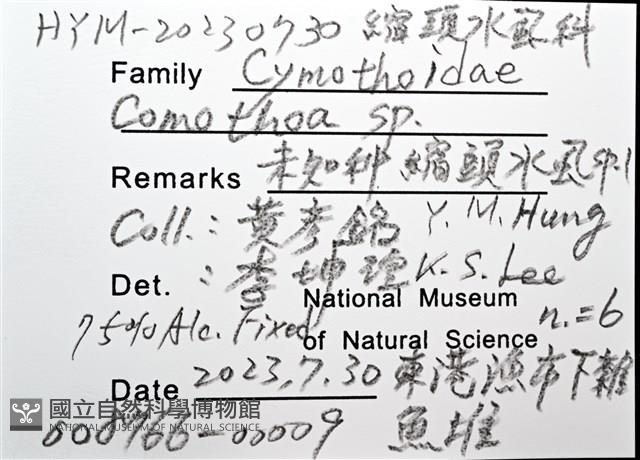 HYM-20230730 縮頭水蝨科
Family Cymothoidae
Comothoa sp.
Remarks 未知种 縮頭水虱sp.1
Coll.: 黃彥銘 Y. M. Hung
Det. : 李坤瑄 K. S. Lee
National Museum
75% Alc. Fixed of Natural Science n.=6
Date 2023.7.30 東港漁市下雜
魚堆
國立自然科學博物館
NATIONAL MUSEUM OF NATURAL SCIENCE
-00009